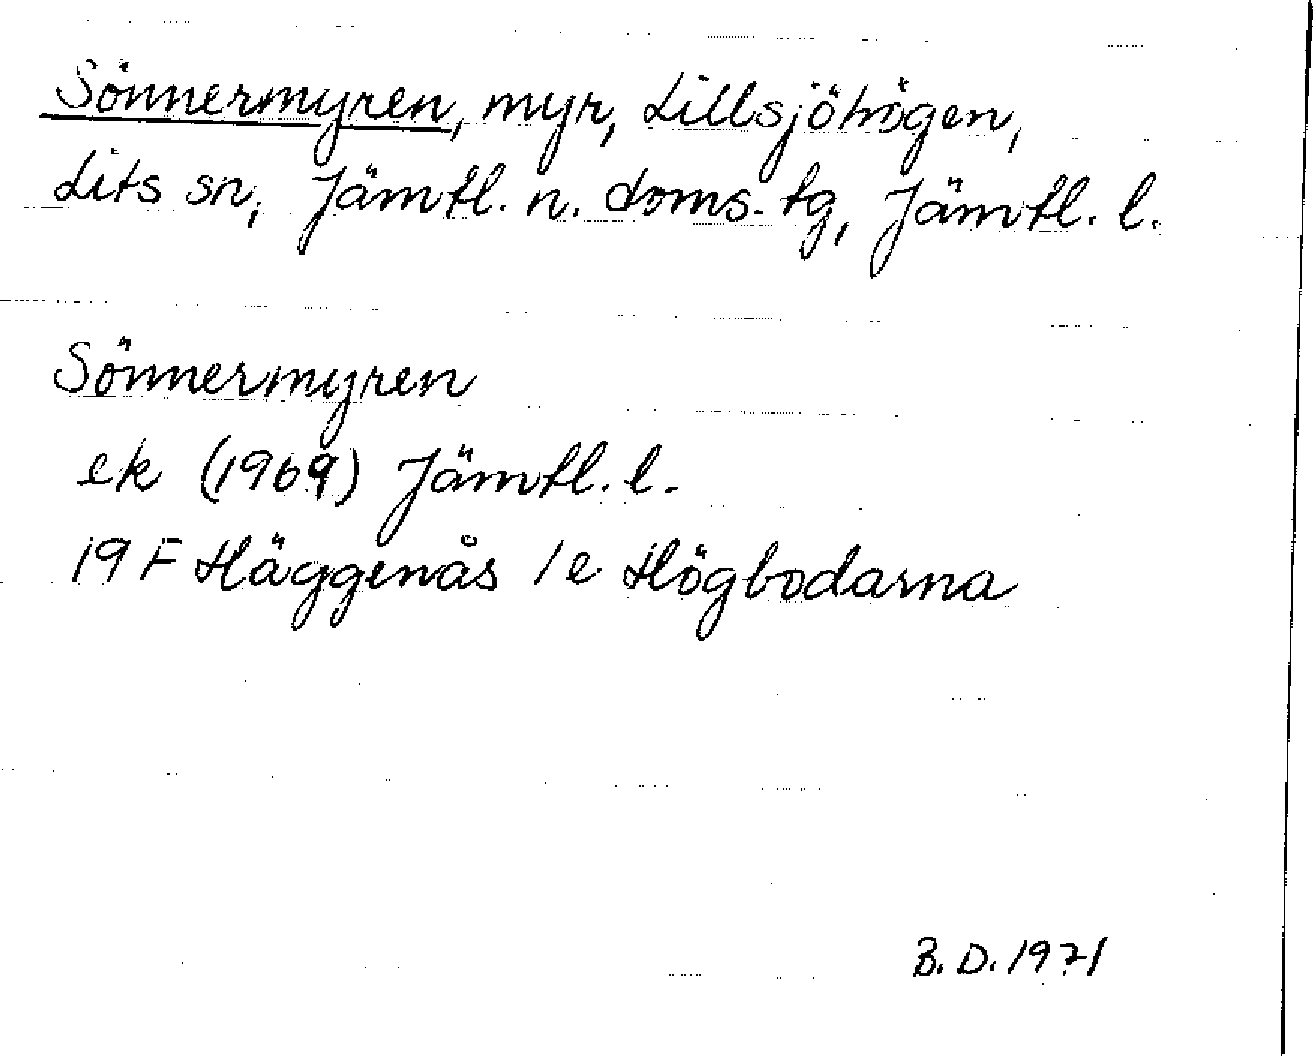 Sönnermyren, myr, Lillsjöhögen,
Lits sn, Jämtl. n. doms. tg, Jämtl. l.
Sönnermyren
ek (1969) Jämtl. l.
19 F Häggenås 1e Högbodarna
B.D. 1971